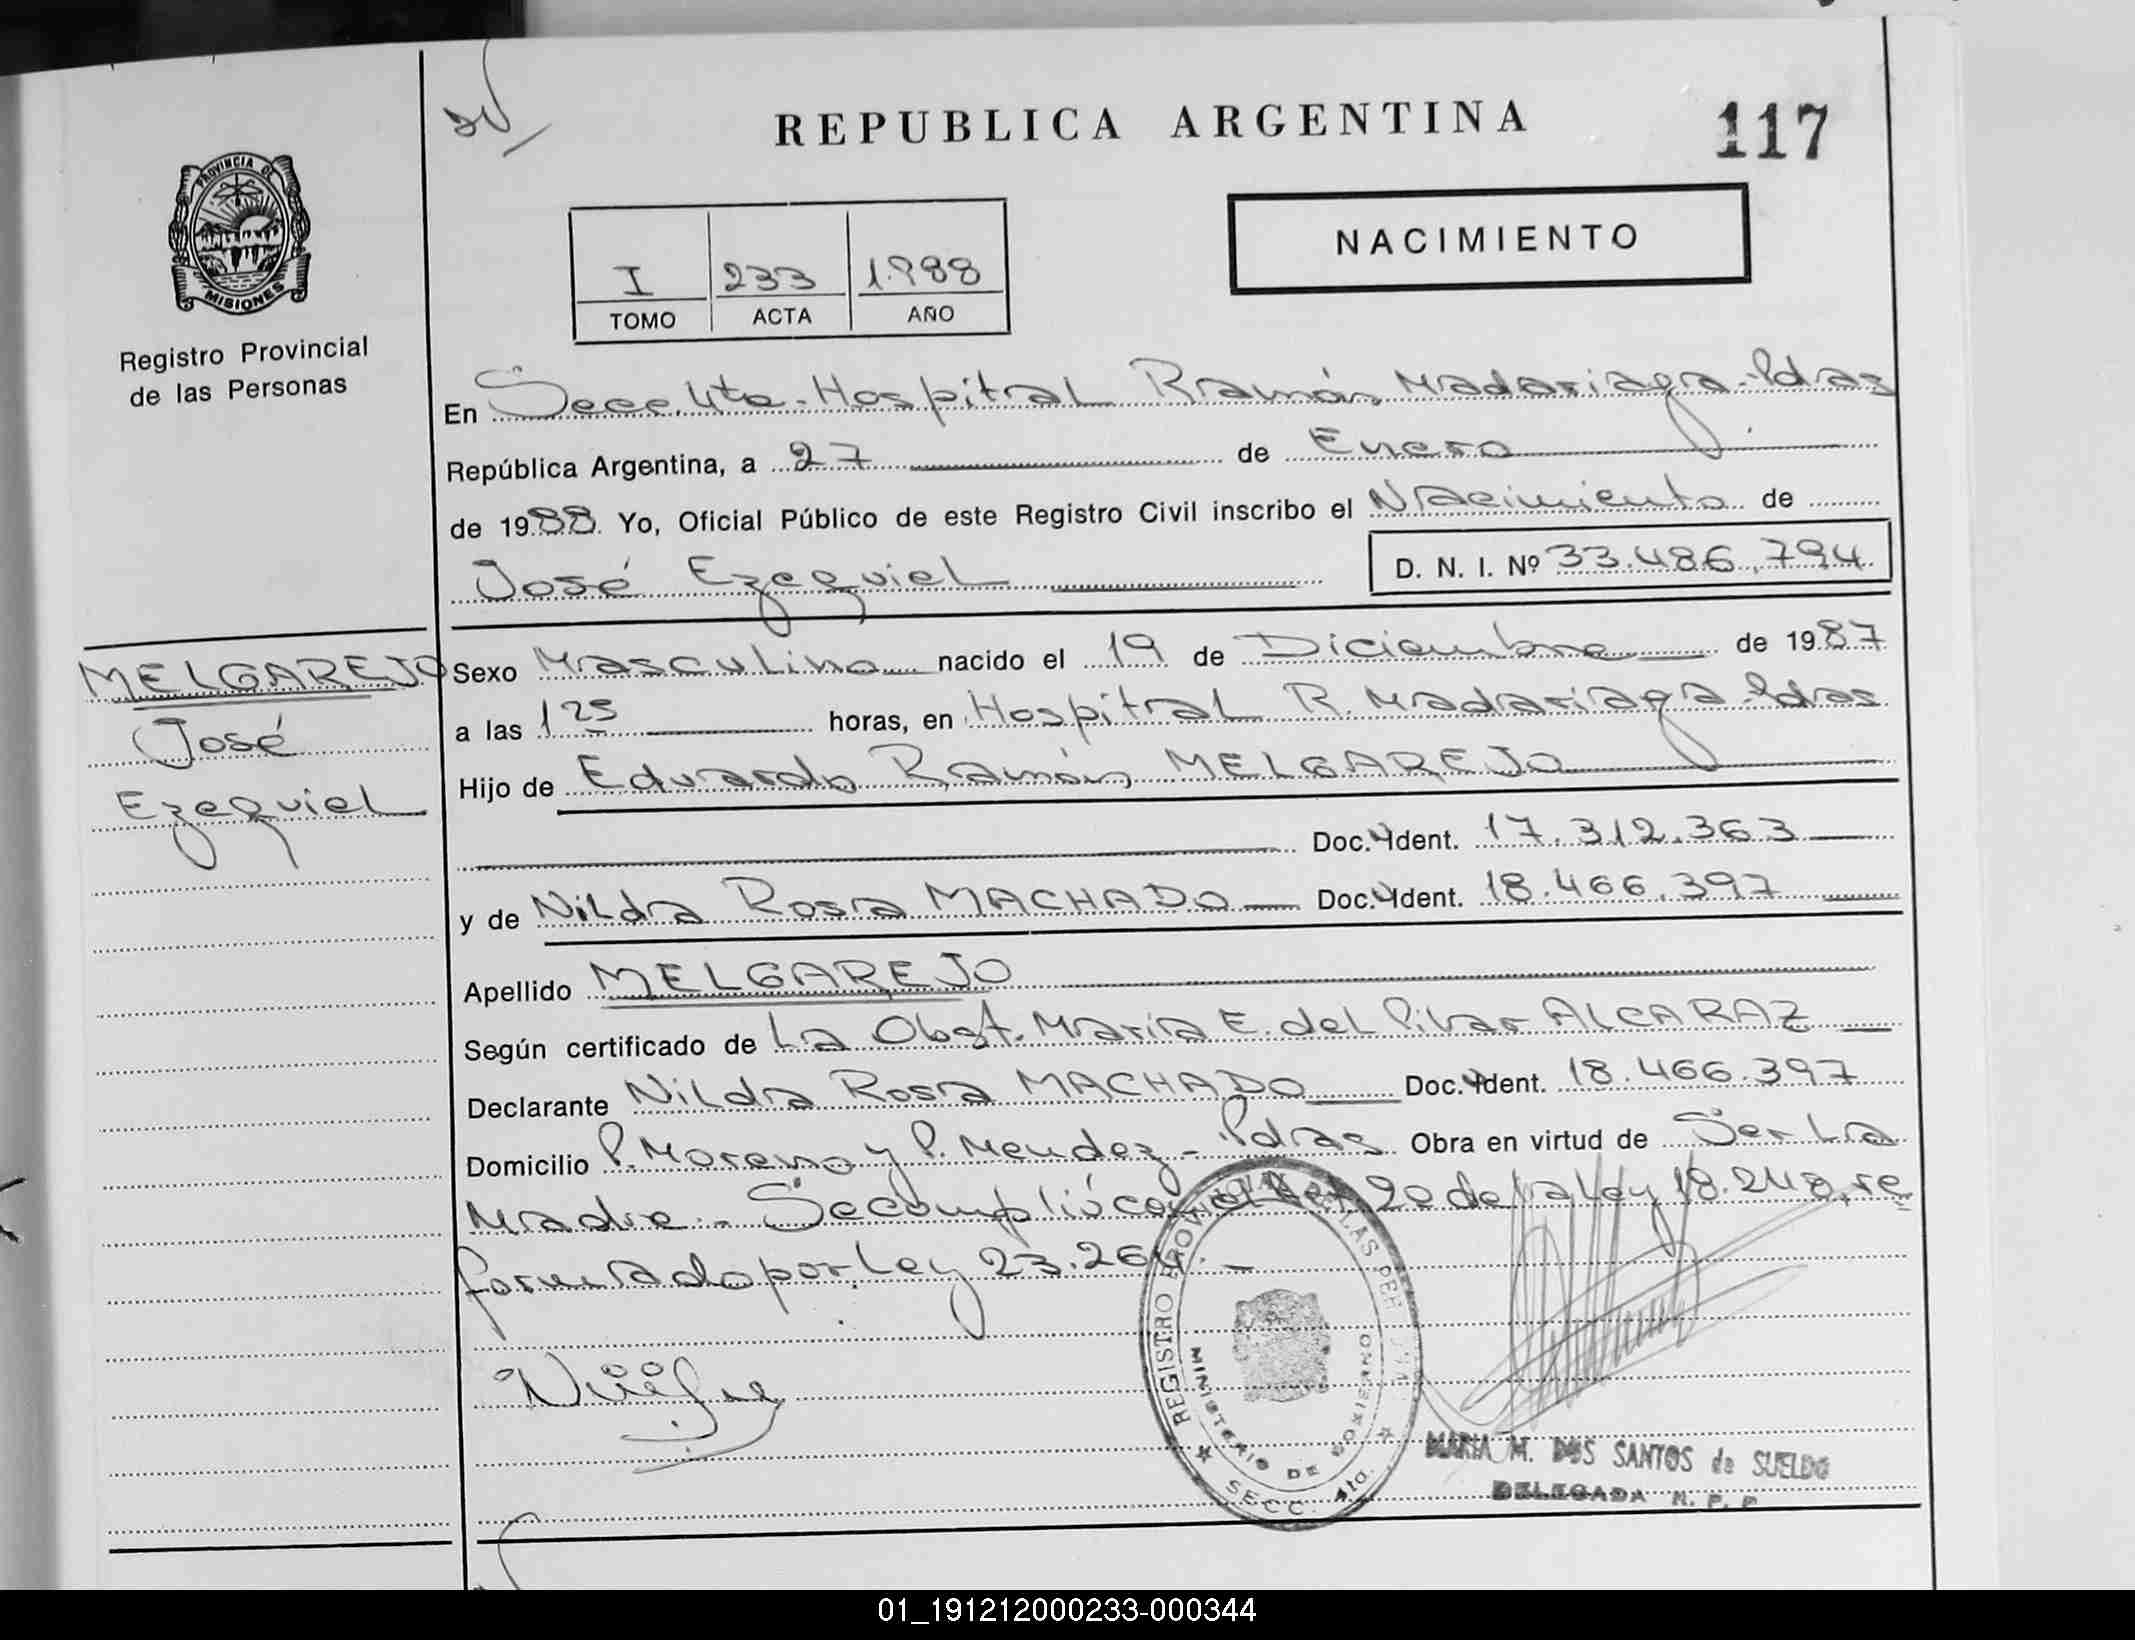 REPUBLICA ARGENTINA
117
PROVINCIA DE
MISIONES
Registro Provincial
de las Personas
I 233 1988
TOMO ACTA AÑO
NACIMIENTO
En Secc. 4ta. Hospital Ramón Madariaga - Pdas
República Argentina, a 27 de Enero
de 1988. Yo, Oficial Público de este Registro Civil inscribo el Nacimiento de
José Ezequiel D. N. I. Nº 33.486.794
MELGAREJO
José
Ezequiel
Sexo Masculino nacido el 19 de Diciembre de 1987
a las 1 25 horas, en Hospital R. Madariaga - Pdas
Hijo de Eduardo Ramón MELGAREJO
Doc. Ident. 17.312.363
y de Nilda Rosa MACHADO Doc. Ident. 18.466.397
Apellido MELGAREJO
Según certificado de La Obst. María E. del Pilar ALCARAZ
Declarante Nilda Rosa MACHADO Doc. Ident. 18.466.397
Domicilio P. Moreno y P. Mendez - Pdas Obra en virtud de Ser La
Madre. - Se cumplió con el Art. 20 de la Ley 18.248, re
formado por Ley 23.264. -
REGISTRO PROVINCIAL DE LAS PERSONAS
MINISTERIO DE GOBIERNO
SECC. 4ta.
MARIA M. DOS SANTOS de SUELDO
DELEGADA R. P. P
01_191212000233-000344